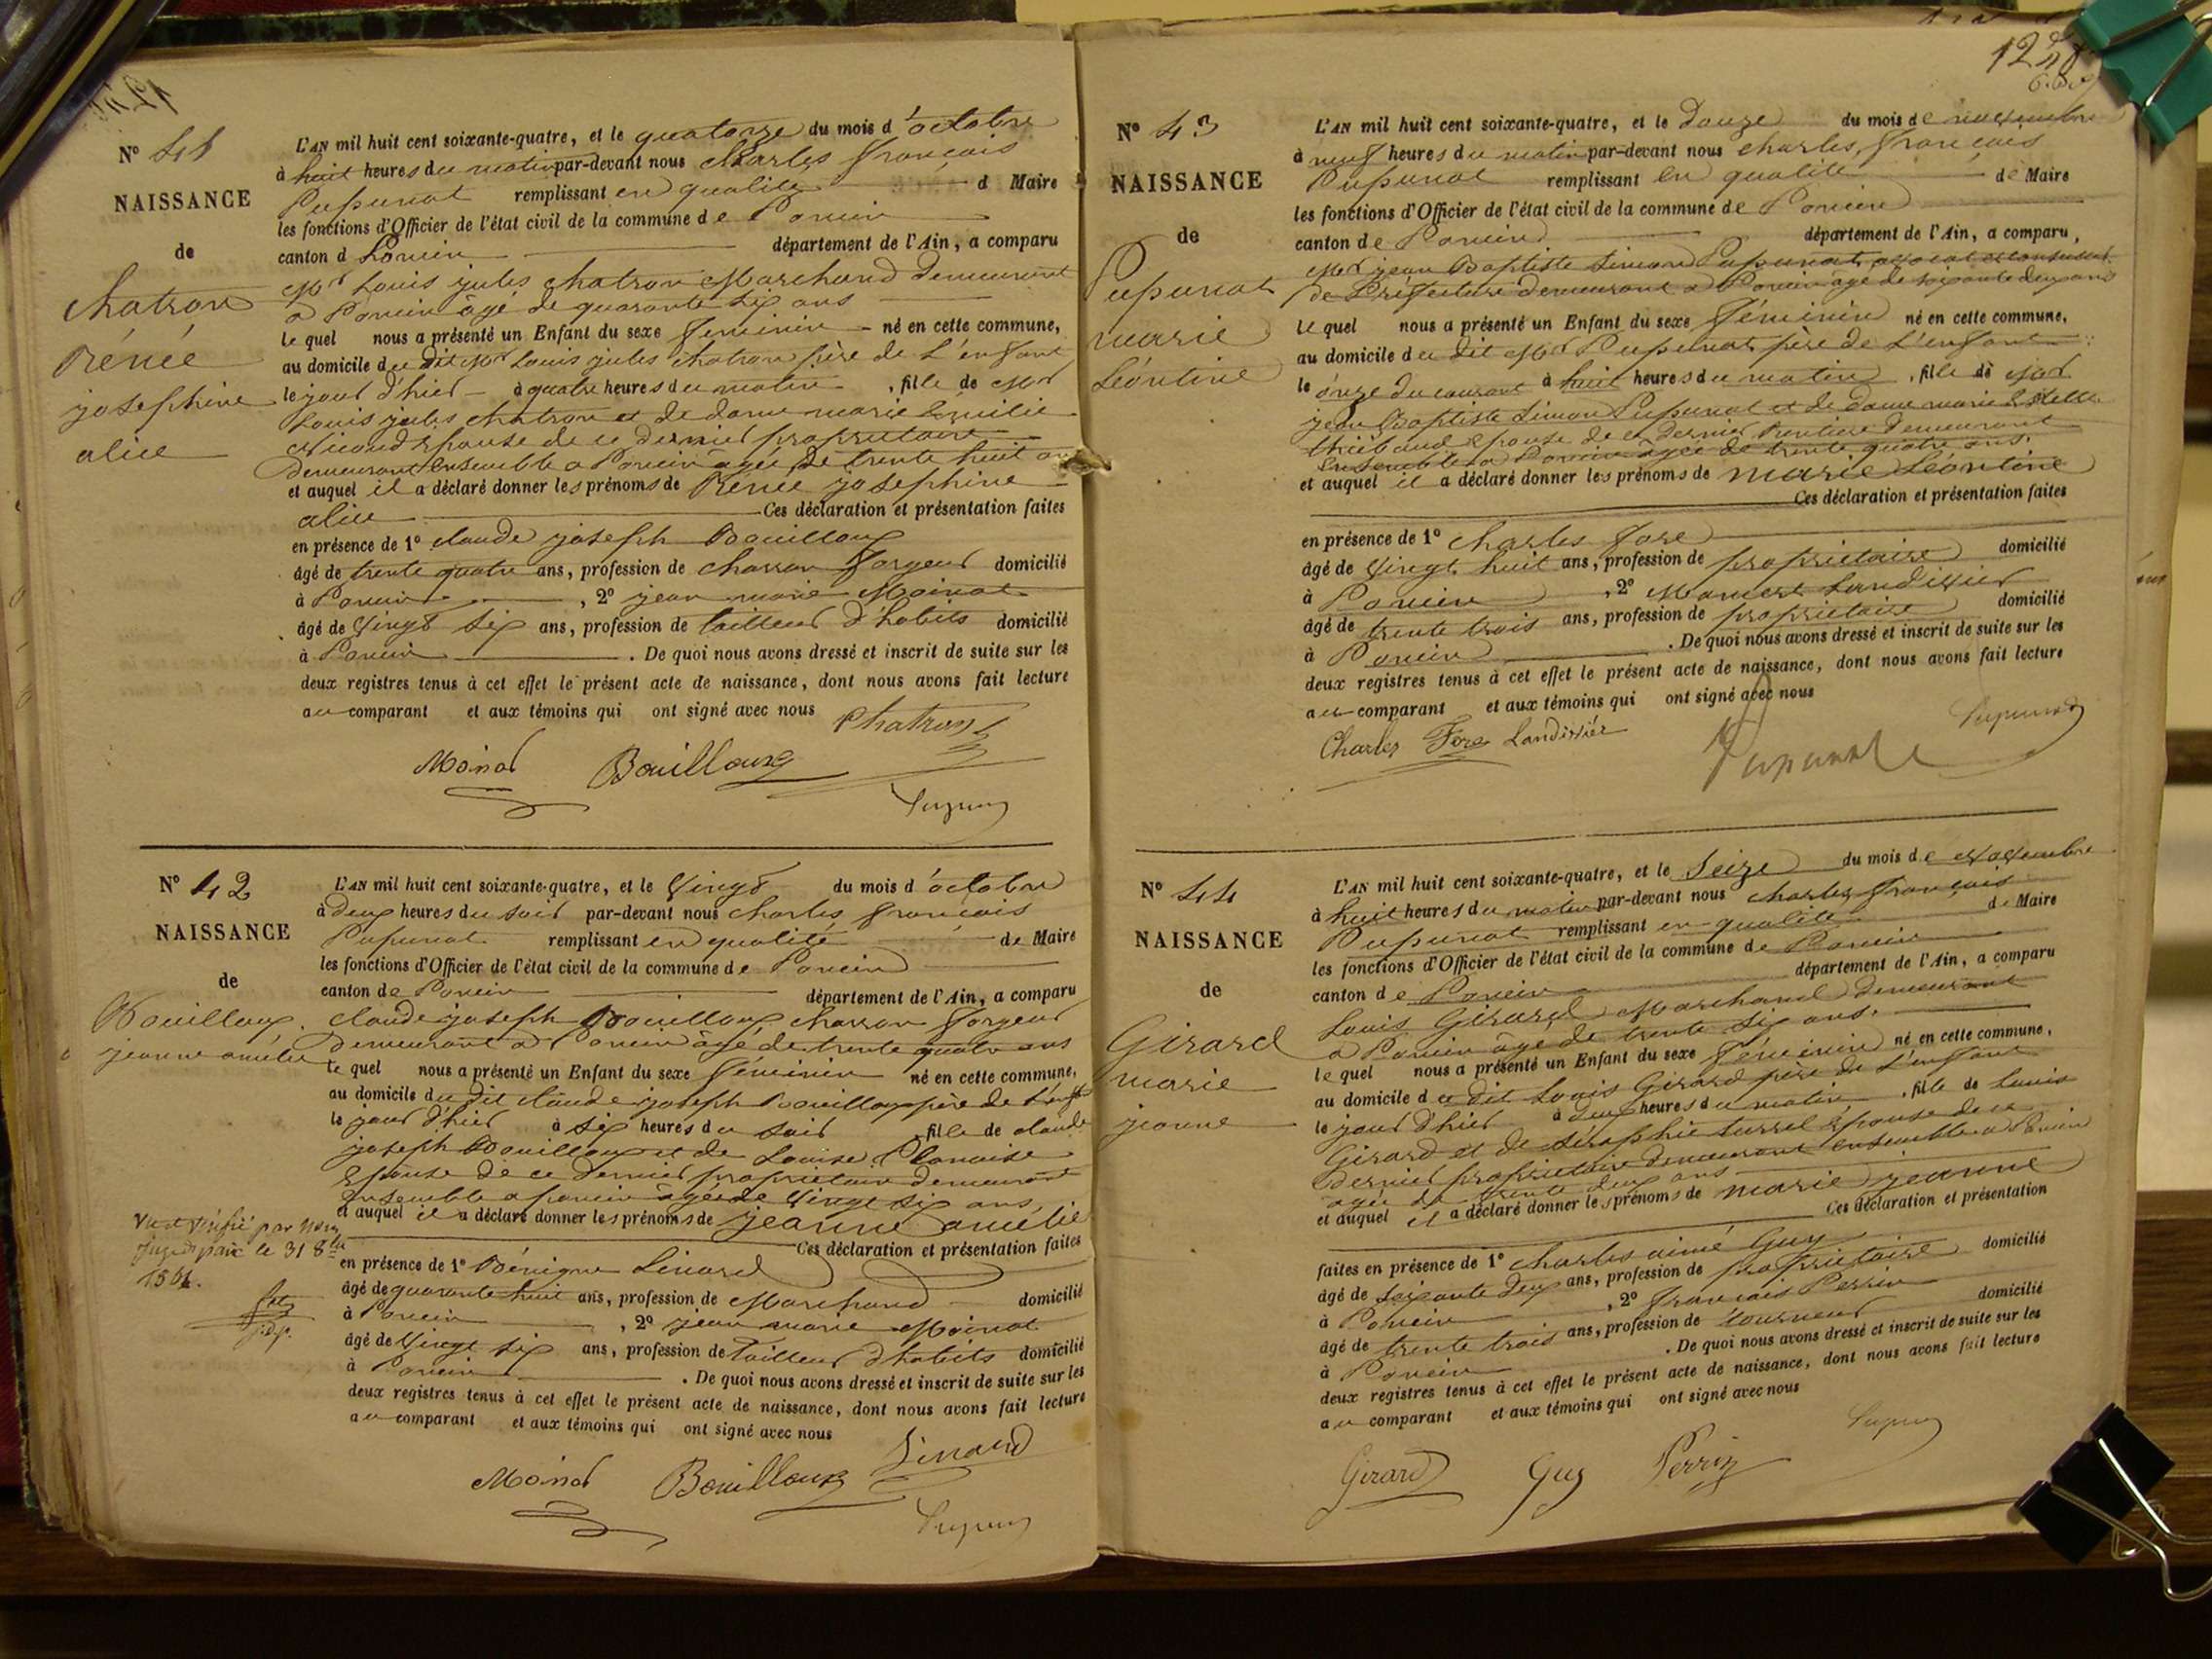 N° 41
NAISSANCE
de
Chatron
Rénée
josephine
alice
L'AN mil huit cent soixante-quatre, et le quatorze du mois d'octobre
à huit heures du matin par-devant nous Charles François
Pupunat remplissant en qualité d Maire
les fonctions d'Officier de l'état civil de la commune de Poncin
canton d Poncin département de l'Ain, a comparu
Mr Louis jules Chatron Marchand demeurant
a Poncin âgé de quarante six ans
lequel nous a présenté un Enfant du sexe féminin né en cette commune,
au domicile du dit Mr Louis jules Chatron père de l'enfant
le jour d'hier à quatre heures du matin, fille de Mr
Louis jules chatron et de dame marie Emilie
Nicoud Epouse de ce dernier propriétaire
demeurant ensemble a Poncin âgée de trente huit an
et auquel il a déclaré donner les prénoms de Renée josephine
alice Ces déclaration et présentation faites
en présence de 1° claude joseph Bouilloux
âgé de trente quatre ans, profession de charron forgeur domicilié
à Poncin, 2° jean marie Moinat
âgé de Vingt six ans, profession de tailleur d'habits domicilié
à Poncin. De quoi nous avons dressé et inscrit de suite sur les
deux registres tenus à cet effet le présent acte de naissance, dont nous avons fait lecture
au comparant et aux témoins qui ont signé avec nous
Chatron
Moinat Bouilloux
N° 42
NAISSANCE
de
Bouilloux
jeanne amélie
L'AN mil huit cent soixante-quatre, et le Vingt du mois d'octobre
à deux heures du soir par-devant nous Charles François
Pupunat remplissant en qualité de Maire
les fonctions d'Officier de l'état civil de la commune de Poncin
canton de Poncin département de l'Ain, a comparu
claude joseph Bouilloux charron forgeur
demeurant a Poncin âgé de trente quatre ans
lequel nous a présenté un Enfant du sexe féminin né en cette commune,
au domicile du dit claude joseph Bouilloux père de l'enft
le jour d'hier à six heures du soir fille de claude
joseph Bouilloux et de Louise Planaise
Epouse de ce dernier propriétaire demeurant
ensemble a poncin âgée de Vingt six ans
et auquel il a déclaré donner les prénoms de jeanne amélie
Ces déclaration et présentation faites
en présence de 1° Bénigne Linard
âgé de quarante huit ans, profession de Marchand domicilié
à Poncin, 2° jean marie Moinat
âgé de Vingt six ans, profession de Tailleur d'habits domicilié
à Poncin. De quoi nous avons dressé et inscrit de suite sur les
deux registres tenus à cet effet le présent acte de naissance, dont nous avons fait lecture
au comparant et aux témoins qui ont signé avec nous
Vu et vérifié par nous
juge de paix le 31 8bre
1864.
j.d.p.
Moinat Bouilloux Linard
N° 43
NAISSANCE
de
Pupunat
marie
Léontine
L'AN mil huit cent soixante-quatre, et le Douze du mois de novembre
à neuf heures du matin par-devant nous charles, François
Pupunat remplissant en qualité de Maire
les fonctions d'Officier de l'état civil de la commune de Poncin
canton de Poncin département de l'Ain, a comparu,
Mr jean Baptiste Simon Pupunat avocat et conseiller
de Préfecture demeurant a Poncin âgé de soixante deux ans
lequel nous a présenté un Enfant du sexe féminin né en cette commune,
au domicile du dit Mr Pupunat père de l'enfant
le onze du courant à huit heures du matin, fille de Mr
jean Baptiste Simon Pupunat et de dame marie Estelle
thiébaud Epouse de ce dernier Rentiere demeurant
ensemble a Poncin âgée de trente quatre ans.
et auquel il a déclaré donner les prénoms de marie Léontine
Ces déclaration et présentation faites
en présence de 1° Charles Fore
âgé de Vingt huit ans, profession de propriétaire domicilié
à Poncin, 2° Landivier
âgé de trente trois ans, profession de propriétaire domicilié
à Poncin. De quoi nous avons dressé et inscrit de suite sur les
deux registres tenus à cet effet le présent acte de naissance, dont nous avons fait lecture
au comparant et aux témoins qui ont signé avec nous
Charles Fore Landivier Pupunat Pupunat
N° 44
NAISSANCE
de
Girard
marie
jeanne
L'AN mil huit cent soixante-quatre, et le Seize du mois de Novembre
à huit heures du matin par-devant nous charles François
Pupunat remplissant en qualité de Maire
les fonctions d'Officier de l'état civil de la commune de Poncin
canton de Poncin département de l'Ain, a comparu
Louis Girard Marchand demeurant
a Poncin âgé de trente six ans.
lequel nous a présenté un Enfant du sexe féminin né en cette commune,
au domicile du dit Louis Girard père de l'enfant
le jour d'hier à deux heures du matin, fille de Louis
Girard et de Séraphie Epouse de ce
dernier propriétaire demeurant ensemble a Poncin
agée de trente deux ans
et auquel il a déclaré donner les prénoms de marie jeanne
Ces déclaration et présentation
faites en présence de 1° Charles aimé Guy
âgé de soixante deux ans, profession de propriétaire domicilié
à Poncin, 2° François Perrin
âgé de trente trois ans, profession de tourneur domicilié
à Poncin. De quoi nous avons dressé et inscrit de suite sur les
deux registres tenus à cet effet le présent acte de naissance, dont nous avons fait lecture
au comparant et aux témoins qui ont signé avec nous
Girard Guy Perrin